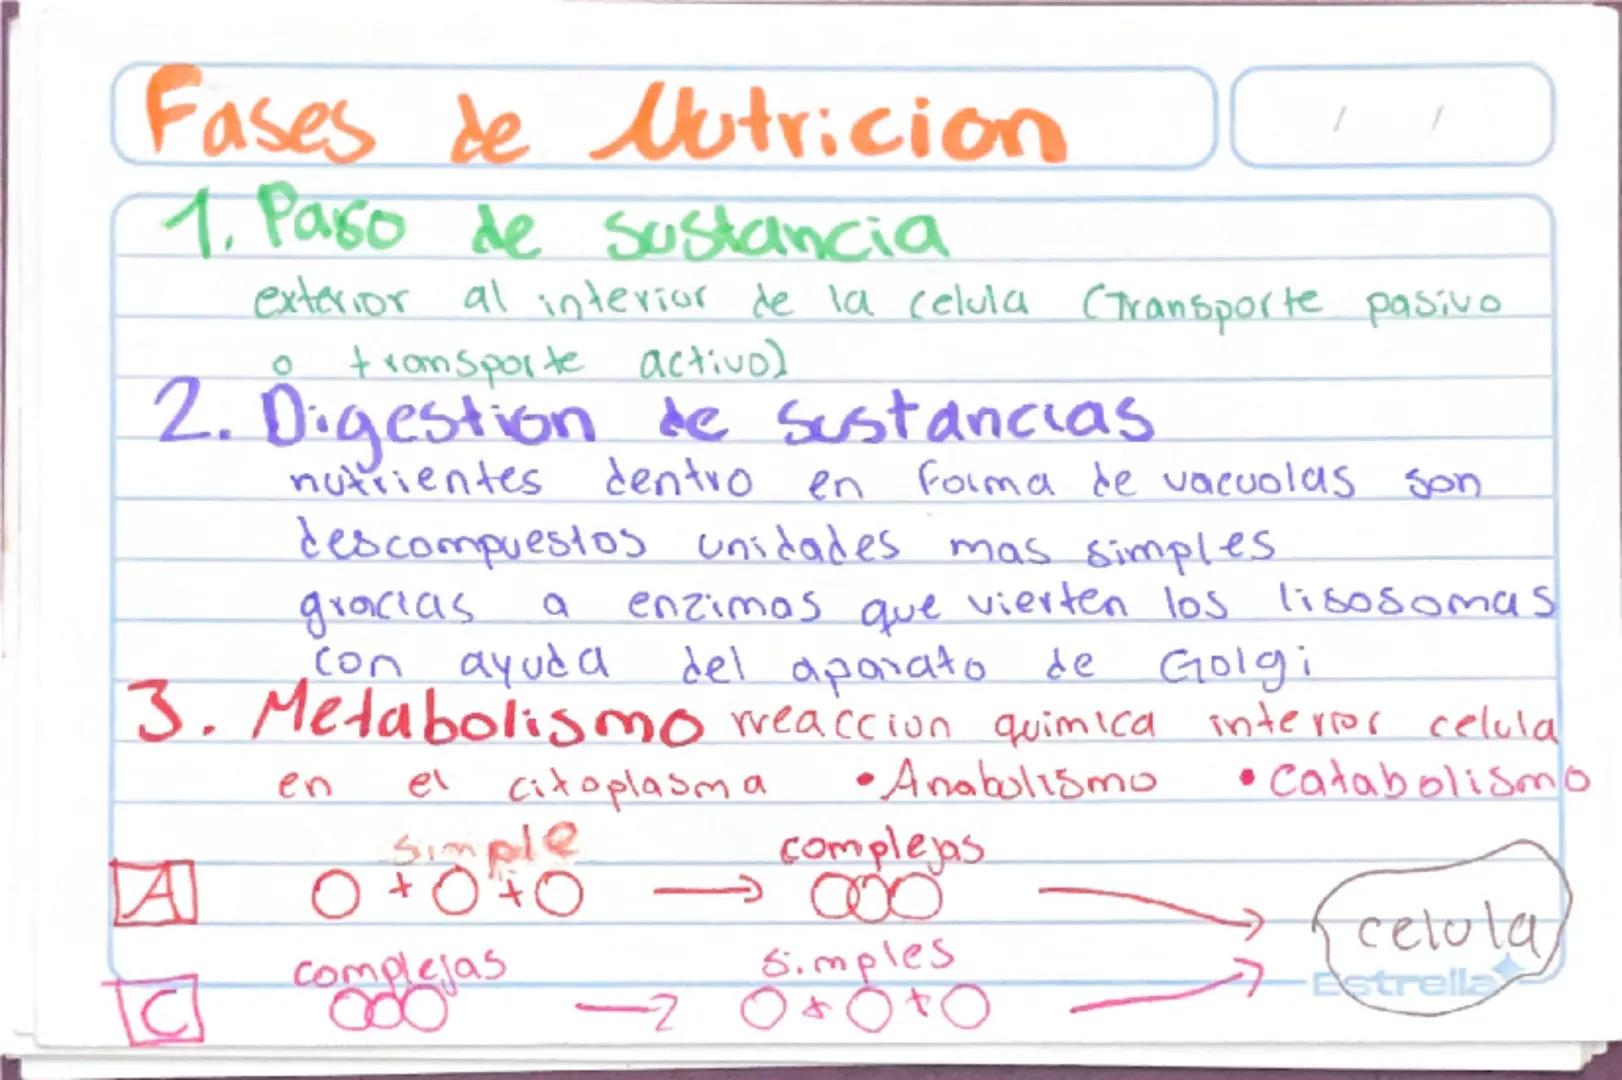 Fases de Nutricion
/ /
1. Paso de sustancia
exterior al interior de la celula (Transporte pasivo
o transporte activo)
2. Digestion de sustancias
nutrientes dentro en forma de vacuolas son
descompuestos unidades mas simples
gracias a enzimas que vierten los lisosomas
con ayuda del aparato de Golgi
3. Metabolismo rreaccion quimica interior celula
en el citoplasma •Anabolismo •Catabolismo
simple complejas
A + + celula
complejas simples
C + +
Estrella